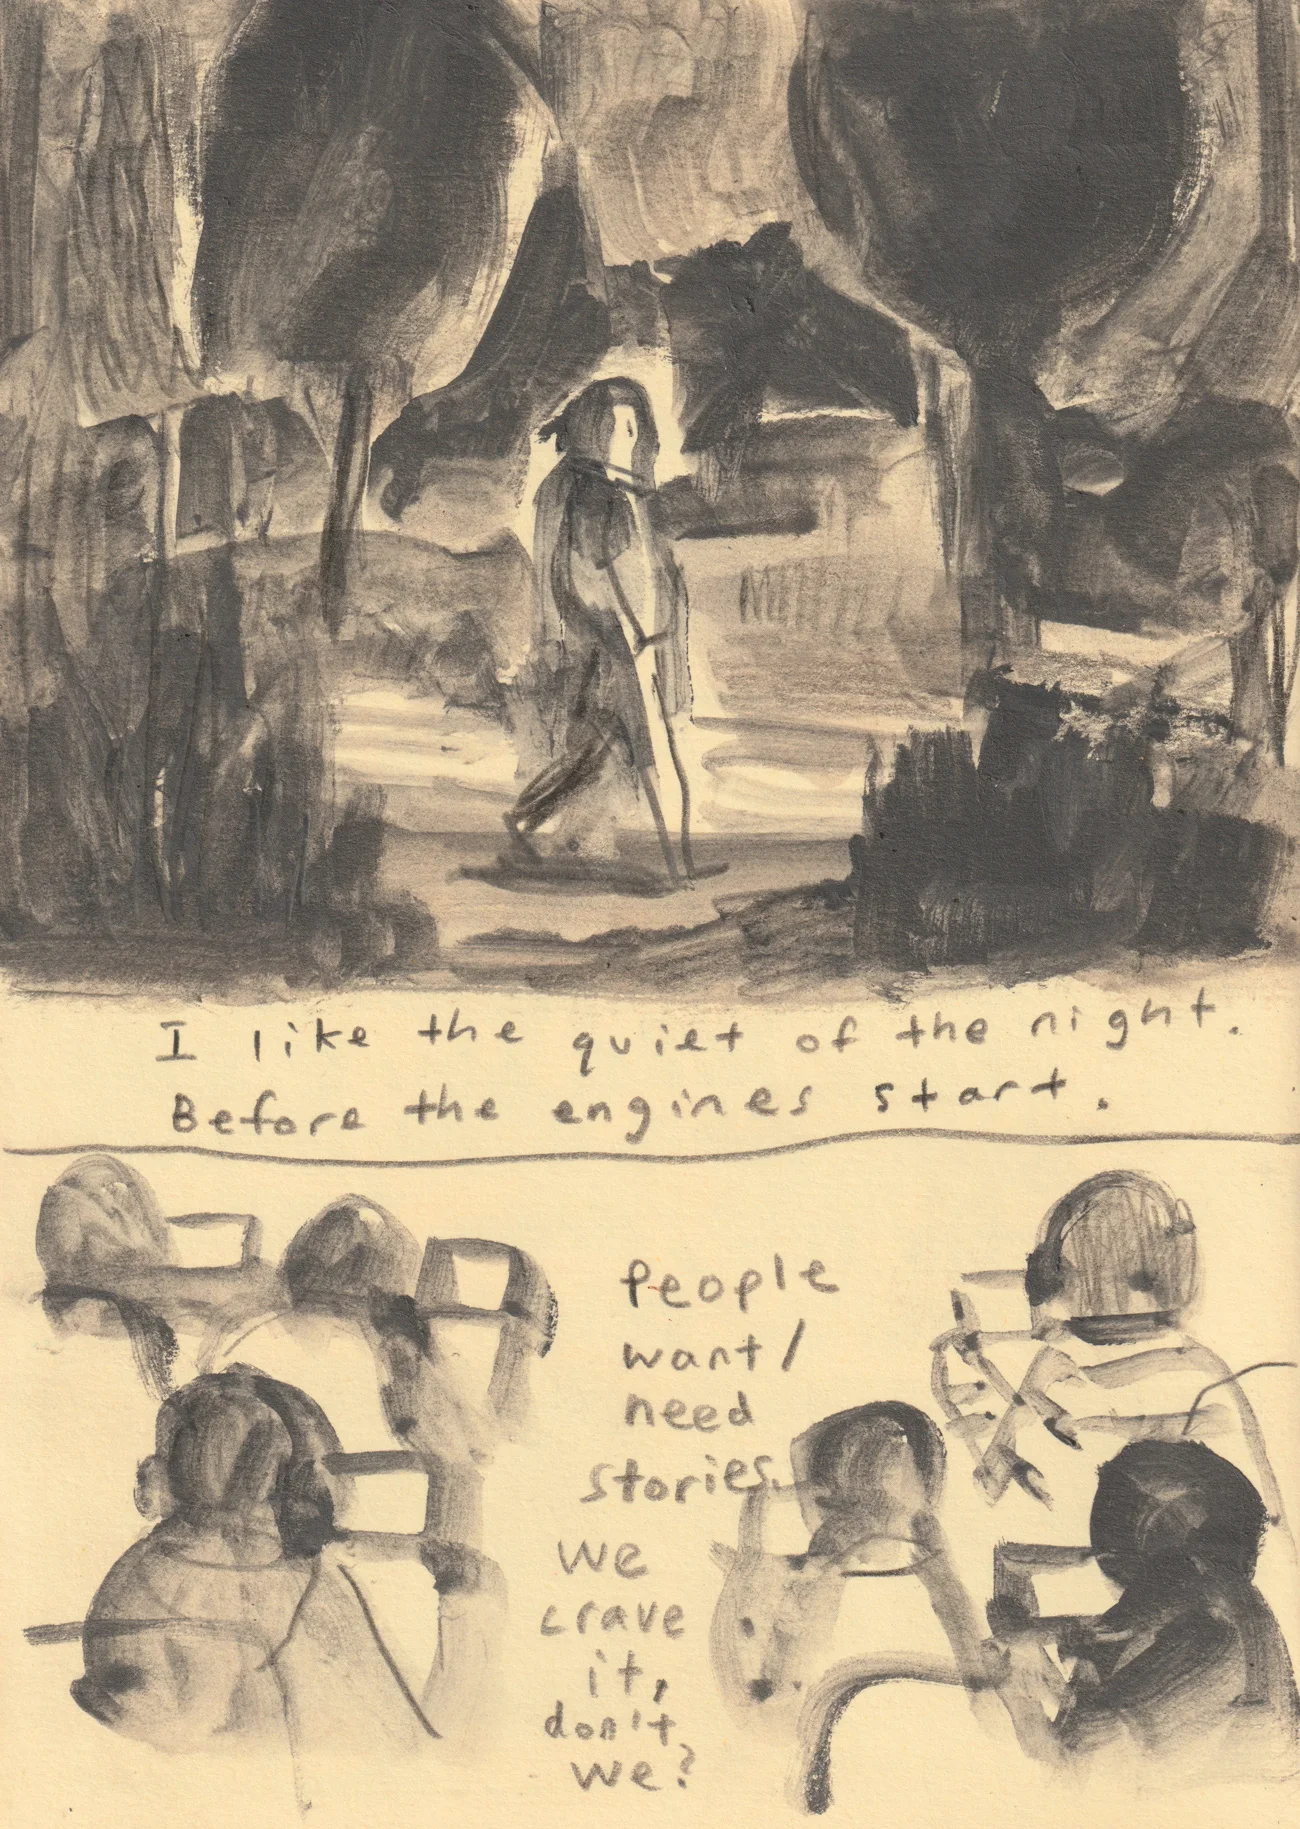 I like the quiet of the night.
Before the engines start.
People
want/
need
stories.
We
crave
it,
don't
we?